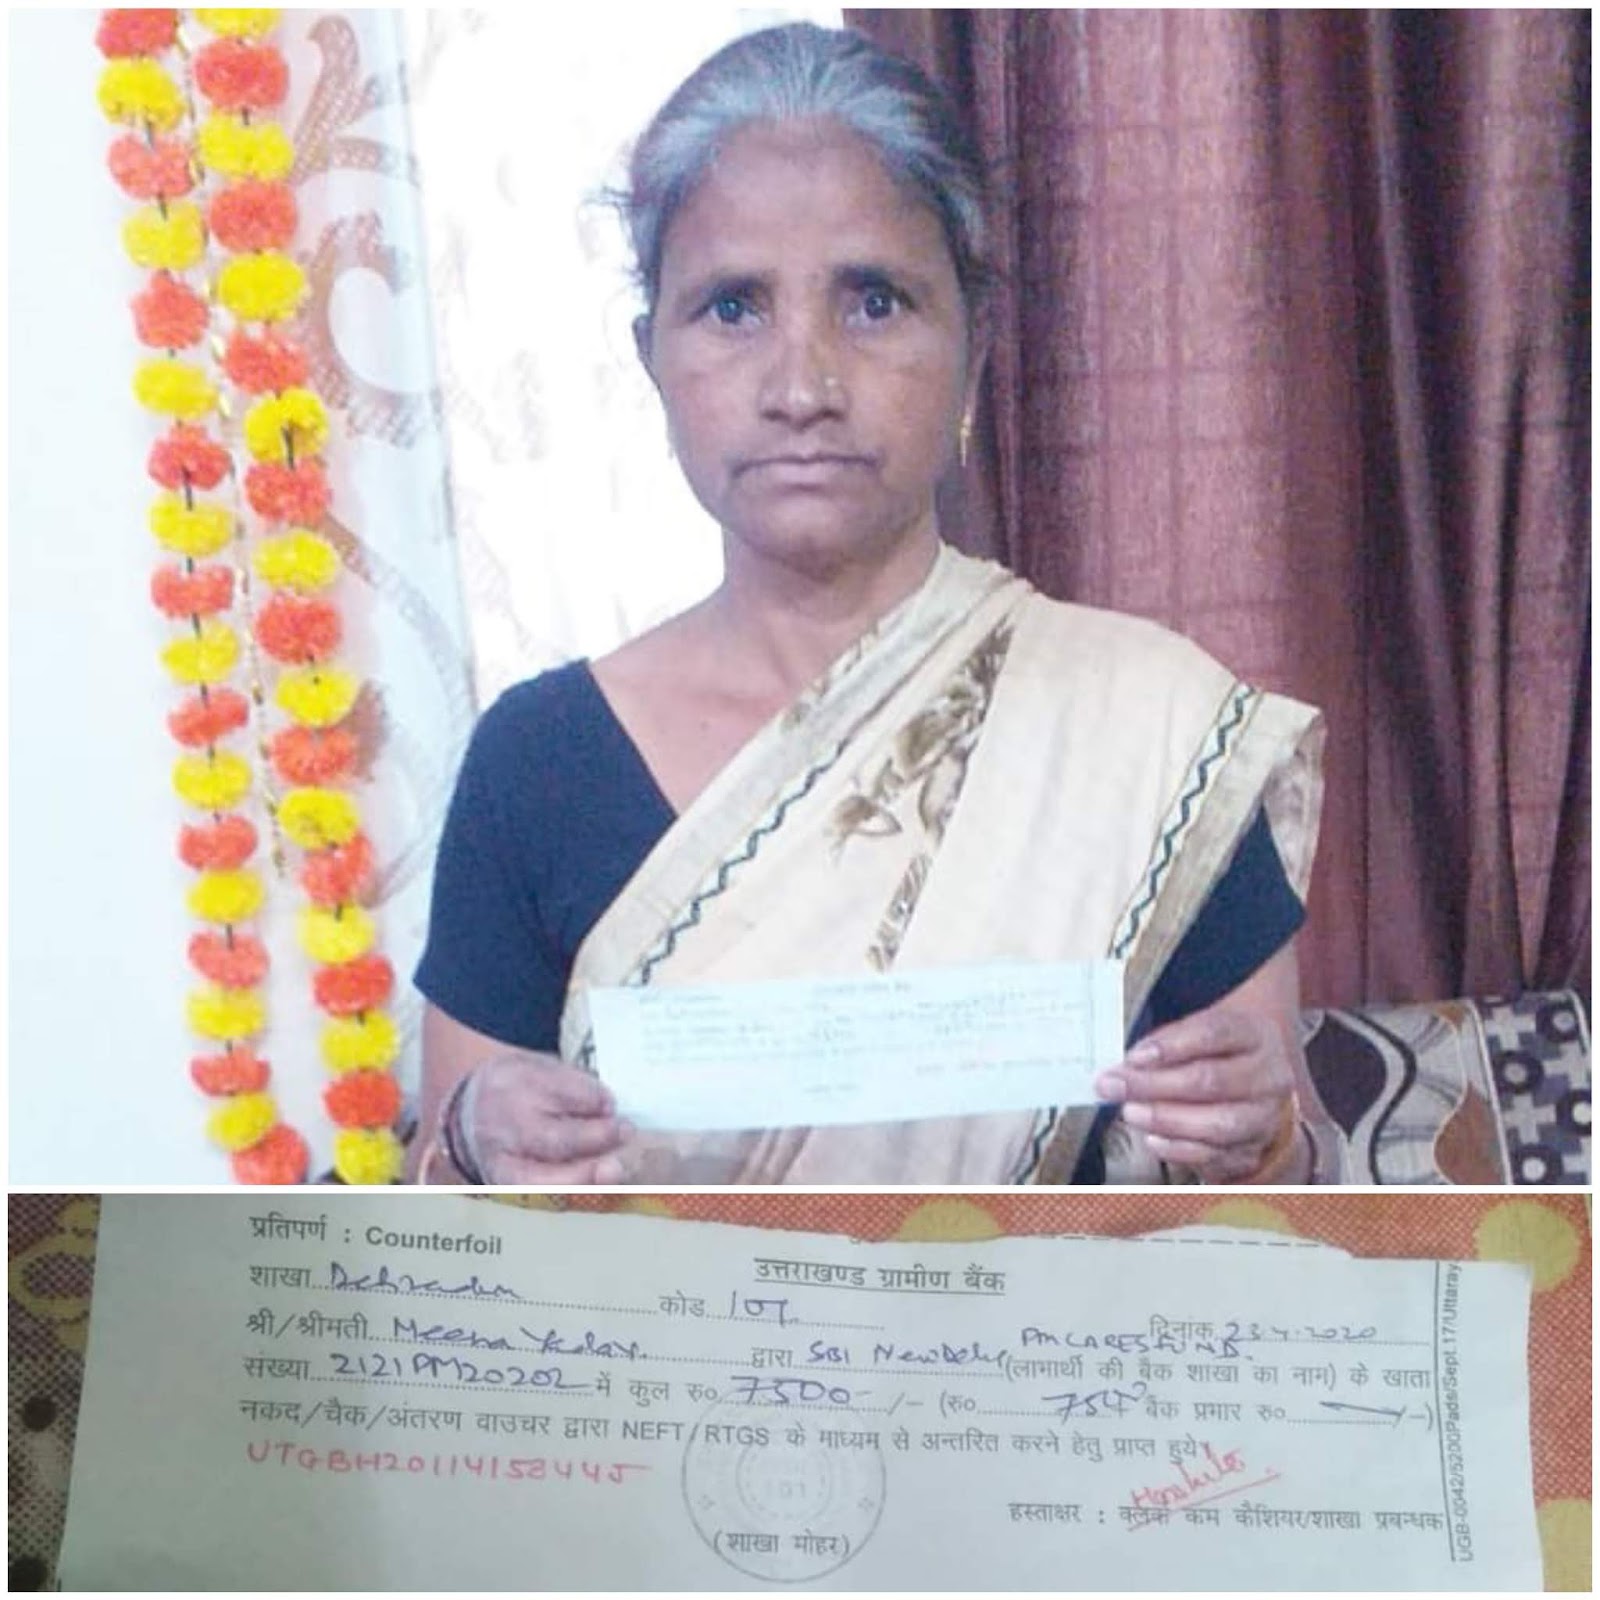 प्रतिपर्ण : Counterfoil
उत्तराखण्ड ग्रामीण बैंक
शाखा Dehradun कोड 107 दिनांक 23.4.2020
श्री/श्रीमती Meena Yadav. द्वारा SBI New Delhi PM CARES FUND. (लाभार्थी की बैंक शाखा का नाम) के खाता
संख्या 2121PM20202 में कुल रु० 7500-/- (रु० बैंक प्रभार रु० /-)
नकद/चैक/अंतरण वाउचर द्वारा NEFT/RTGS के माध्यम से अन्तरित करने हेतु प्राप्त हुये
UTGBH20114158445
हस्ताक्षर : क्लर्क कम कैशियर/शाखा प्रबन्धक
(शाखा मोहर)
UGB-0042/5200Pads/Sept.17/Uttaray